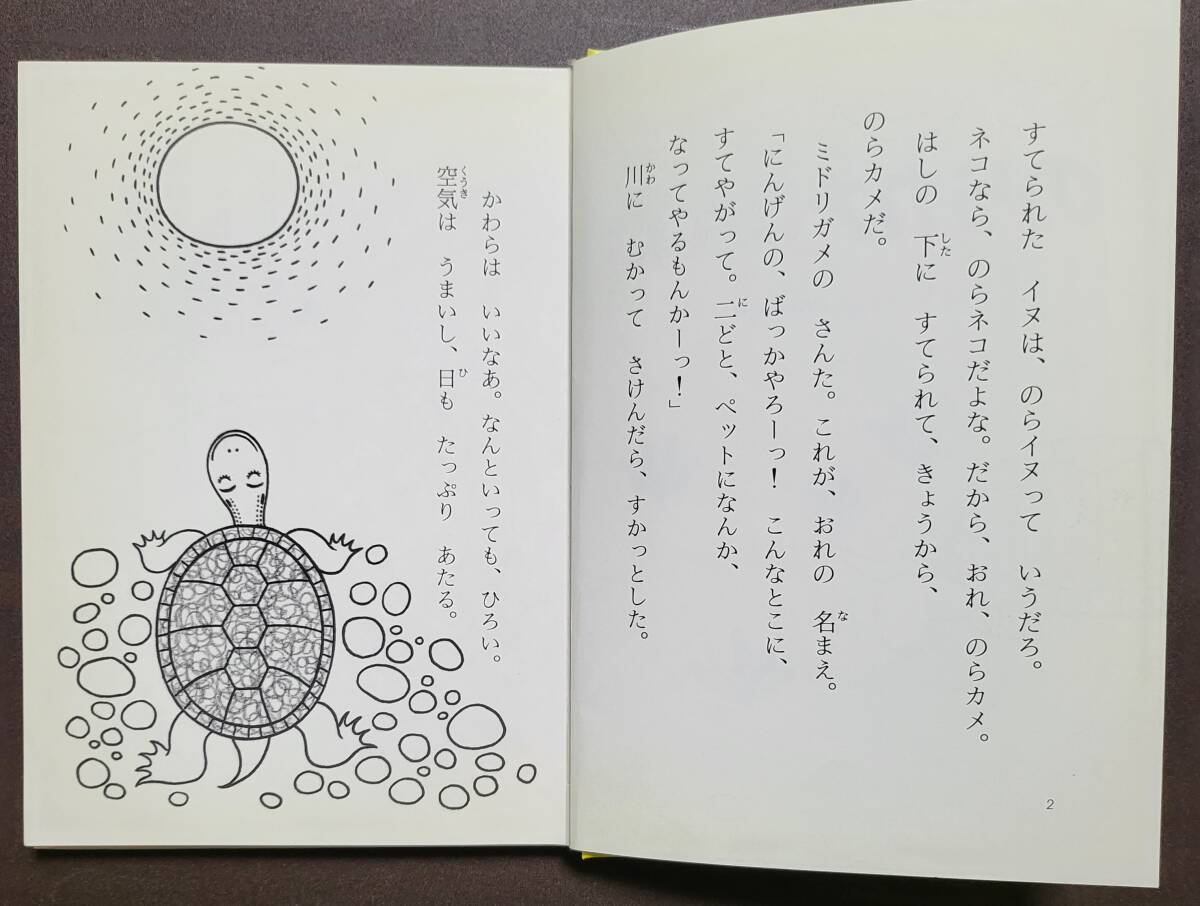 すてられた　イヌは、のらイヌって　いうだろ。
ネコなら、のらネコだよな。だから、おれ、のらカメ。
はしの　下に　すてられて、きょうから、
のらカメだ。
ミドリガメの　さんた。これが、おれの　名まえ。
「にんげんの、ばっかやろーっ！　こんなとこに、
すてやがって。二どと、ペットになんか、
なってやるもんかーっ！」
川に　むかって　さけんだら、すかっとした。
2
かわらは　いいなあ。なんといっても、ひろい。
空気は　うまいし、日も　たっぷり　あたる。